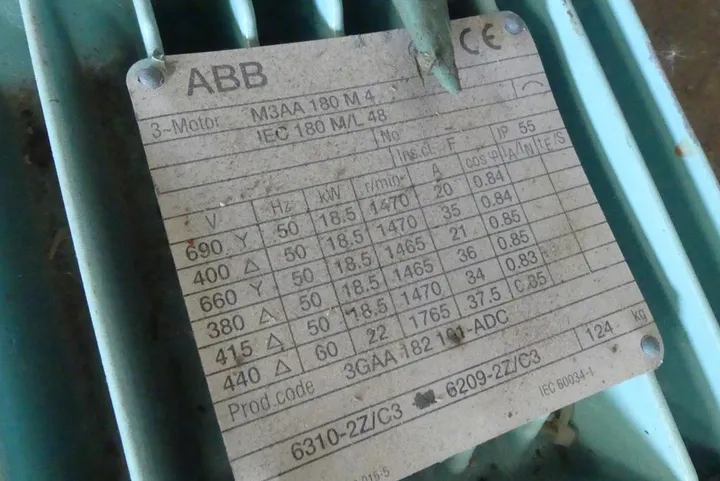 ABB CE
3~Motor M3AA 180 M 4
IEC 180 M/L 48
No
Ins.cl. F IP 55
V Hz kW r/min A cos φ IA/IN tE/S
690 Y 50 18.5 1470 20 0.84
400 Δ 50 18.5 1470 35 0.84
660 Y 50 18.5 1465 21 0.85
380 Δ 50 18.5 1465 36 0.85
415 Δ 50 18.5 1470 34 0.83
440 Δ 60 22 1765 37.5 0.85
Prod.code 3GAA 182 101-ADC
6310-2Z/C3 6209-2Z/C3 124 kg
IEC 60034-1